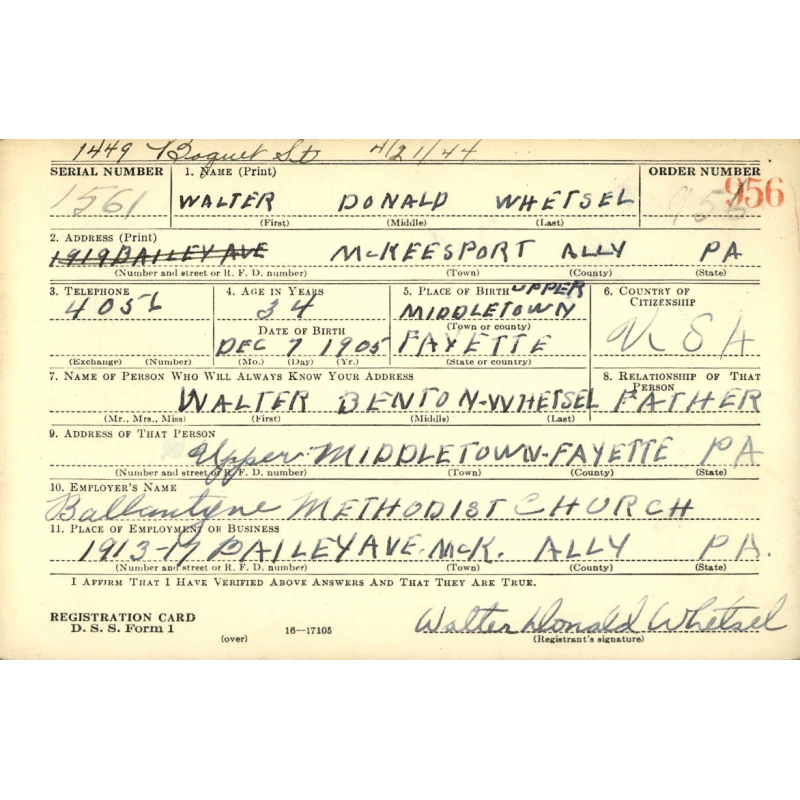 1449 Boquet St 4/21/44
SERIAL NUMBER 1. NAME (Print) ORDER NUMBER
1561 WALTER DONALD WHETSEL 956 956
(First) (Middle) (Last)
2. ADDRESS (Print)
1919 BAILEY AVE McKEESPORT ALLY PA
(Number and street or R. F. D. number) (Town) (County) (State)
3. TELEPHONE 4. AGE IN YEARS 5. PLACE OF BIRTH UPPER 6. COUNTRY OF CITIZENSHIP
34 MIDDLETOWN
DATE OF BIRTH (Town or county)
DEC 7 1905 FAYETTE USA
(Exchange) (Number) (Mo.) (Day) (Yr.) (State or country)
7. NAME OF PERSON WHO WILL ALWAYS KNOW YOUR ADDRESS 8. RELATIONSHIP OF THAT PERSON
WALTER BENTON-WHETSEL FATHER
(Mr., Mrs., Miss) (First) (Middle) (Last)
9. ADDRESS OF THAT PERSON
Upper MIDDLETOWN-FAYETTE PA
(Number and street or R. F. D. number) (Town) (County) (State)
10. EMPLOYER'S NAME
Ballantyne METHODIST CHURCH
11. PLACE OF EMPLOYMENT OR BUSINESS
1913-17 BAILEY AVE. McK. ALLY PA.
(Number and street or R. F. D. number) (Town) (County) (State)
I AFFIRM THAT I HAVE VERIFIED ABOVE ANSWERS AND THAT THEY ARE TRUE.
REGISTRATION CARD
D. S. S. Form 1 (over) 16—17105 Walter Donald Whetsel
(Registrant's signature)